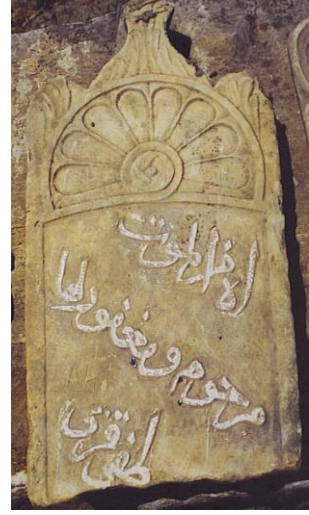 اه من الموت
مرحوم و مغفور لها
قزى